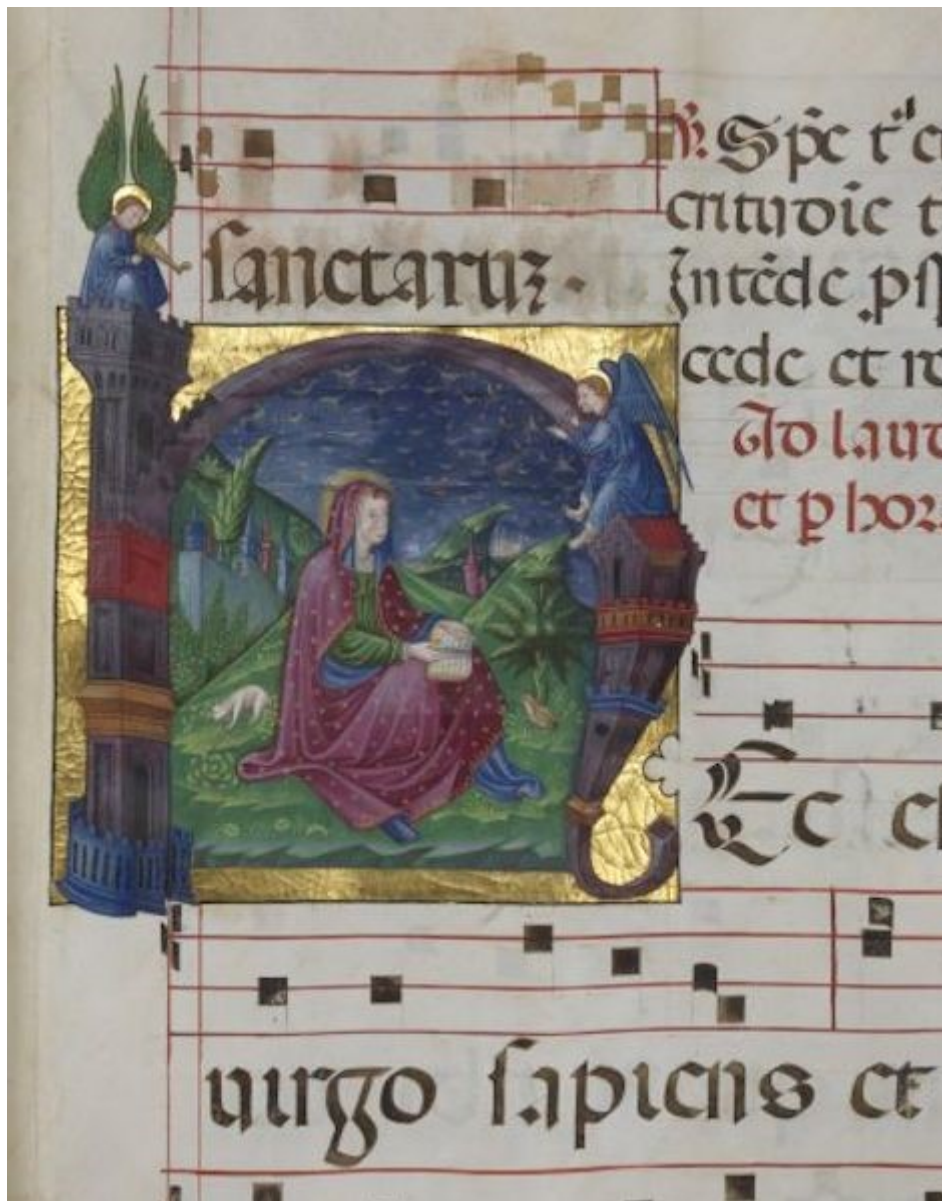 sanctaruz.
V. Spe t
Intede ps
cede et re
Ad laud
et p hor
Ec c
uirgo sapiens et